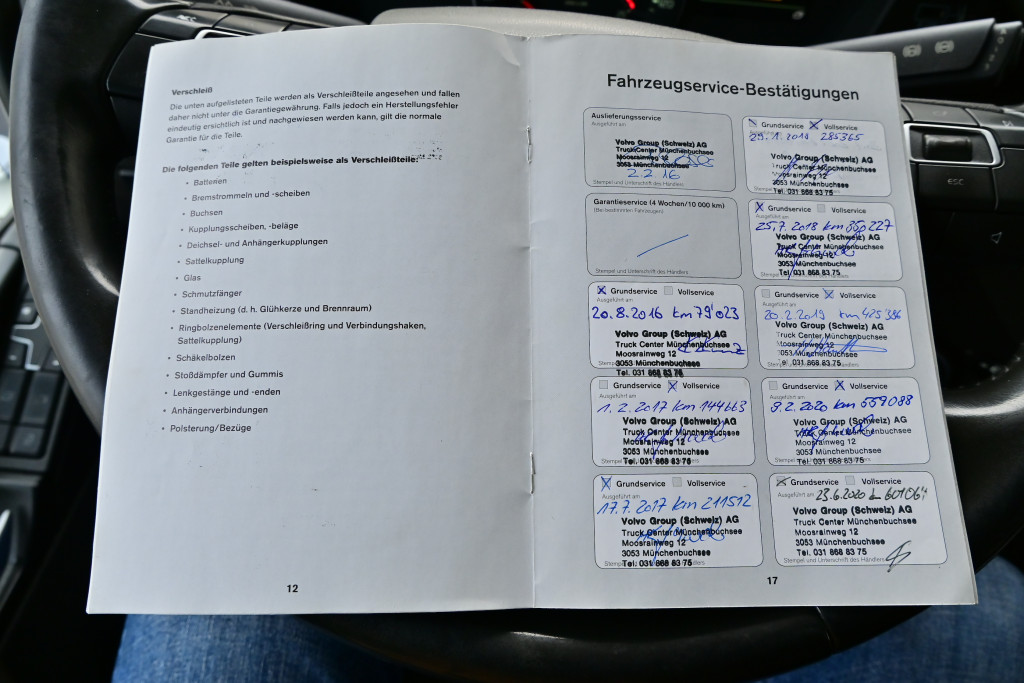 Verschleiß
Die unten aufgelisteten Teile werden als Verschleißteile angesehen und fallen
daher nicht unter die Garantiegewährung. Falls jedoch ein Herstellungsfehler
eindeutig ersichtlich ist und nachgewiesen werden kann, gilt die normale
Garantie für die Teile.
Die folgenden Teile gelten beispielsweise als Verschleißteile:
• Batterien
• Bremstrommeln und -scheiben
• Buchsen
• Kupplungsscheiben, -beläge
• Deichsel- und Anhängerkupplungen
• Sattelkupplung
• Glas
• Schmutzfänger
• Standheizung (d. h. Glühkerze und Brennraum)
• Ringbolzenelemente (Verschleißring und Verbindungshaken,
Sattelkupplung)
• Schäkelbolzen
• Stoßdämpfer und Gummis
• Lenkgestänge und -enden
• Anhängerverbindungen
• Polsterung/Bezüge
12
Fahrzeugservice-Bestätigungen
Auslieferungsservice
Ausgeführt am
Volvo Group (Schweiz) AG
TruckCenter Münchenbuchsee
Moosrainweg 12
3053 Münchenbuchsee
2.2 16
Stempel und Unterschrift des Händlers
Garantieservice (4 Wochen/10 000 km)
(Bei bestimmten Fahrzeugen)
Stempel und Unterschrift des Händlers
X Grundservice Vollservice
Ausgeführt am
20.8.2016 km 79'023
Volvo Group (Schweiz) AG
Truck Center Münchenbuchsee
Moosrainweg 12
3053 Münchenbuchsee
Tel. 031 868 83 75
Grundservice X Vollservice
Ausgeführt am
1.2.2017 km 144663
Volvo Group (Schweiz) AG
Truck Center Münchenbuchsee
Moosrainweg 12
3053 Münchenbuchsee
Stempel Tel. 031 868 83 75
X Grundservice Vollservice
Ausgeführt am
17.7.2017 km 211512
Volvo Group (Schweiz) AG
Truck Center Münchenbuchsee
Moosrainweg 12
3053 Münchenbuchsee
Tel. 031 868 83 75 Händlers
Grundservice X Vollservice
29.1.2018 285365
Volvo Group (Schweiz) AG
Truck Center Münchenbuchsee
Moosrainweg 12
3053 Münchenbuchsee
Tel. 031 868 83 75
X Grundservice Vollservice
Ausgeführt am
25.7.2018 km 350227
Volvo Group (Schweiz) AG
Truck Center Münchenbuchsee
Moosrainweg 12
3053 Münchenbuchsee
Tel. 031 868 83 75
Grundservice X Vollservice
Ausgeführt am
20.2.2019 km 425386
Volvo Group (Schweiz) AG
Truck Center Münchenbuchsee
Moosrainweg 12
3053 Münchenbuchsee
Tel. 031 868 83 75
Grundservice X Vollservice
Ausgeführt am
9.2.2020 km 559088
Volvo Group (Schweiz) AG
Truck Center Münchenbuchsee
Moosrainweg 12
3053 Münchenbuchsee
Tel. 031 868 83 75
X Grundservice Vollservice
Ausgeführt am 23.6.2020
Volvo Group (Schweiz) AG
Truck Center Münchenbuchsee
Moosrainweg 12
3053 Münchenbuchsee
Tel. 031 868 83 75
Stempel und Unterschrift des Händlers
17
ESC